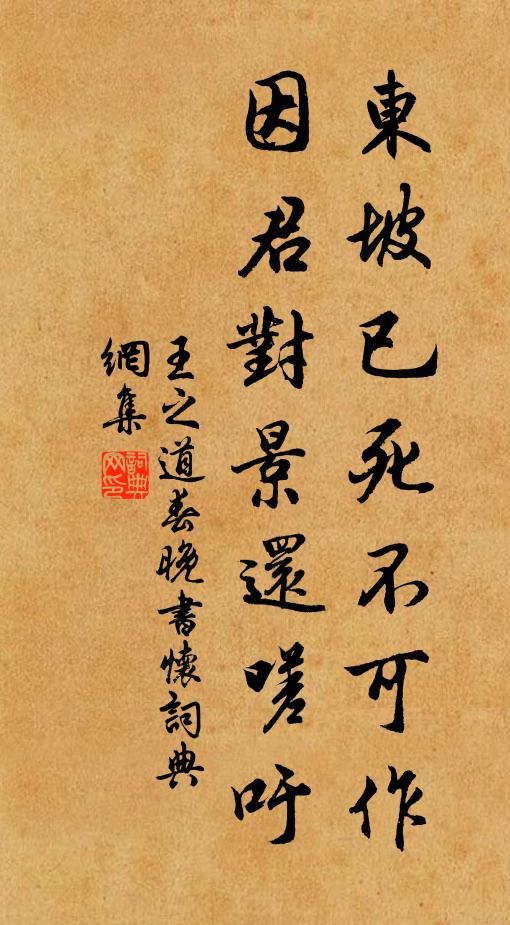 東坡已死不可作
因君對景還嗟吁
王之道春晚書懷詞典
網集
詞典網印